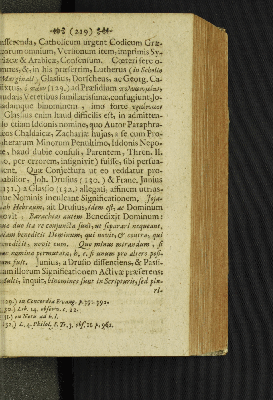 (219)
asserenda, Catholicum urgent Codicum Græ-
corum omnium, Versionum item, imprimis Sy-
riacæ & Arabicæ, Consensum. Cœteri fere o-
mnes, &, in his præsertim, Lutherus (in Scholio
Marginali) Glassius, Dorscheus, ac Georg. Ca-
lixtus, (129.) ad Præsidium
Judæis Veteribus familiarissimæ, confugiunt, Jo-
jadamque binominem, imo forte
Glassius enim haud difficilis est, in admitten-
do etiam Iddonis nomine, quo Autor Paraphra-
seos Chaldaicæ, Zachariæ hujus, a se cum Pro-
phetarum Minorum Penultimo, Iddonis Nepo-
te, haud dubie confusi, Parentem, Thren. II.
20, per errorem, insignivit) fuisse, sibi persua-
dent. Quæ Conjectura ut eo reddatur pro-
babilior, Joh. Drusius (130.) & Franc. Junius
(131.) a Glassio (132.) allegati, affinem utrius-
que Nominis inculcant Significationem. Joja-
dah Hebræum, ait Drusius, idem est, ac Dominum
novit. Barachias autem Benedixit Dominum:
quæ duæ ita re conjuncta sunt, ut separari nequeant,
nam benedicit Dominum, qui novit, & contra, qui
benedicit, novit eum. Quo minus mirandum, si
hæc nomina permutata, h. e. si unum pro altero posi-
tum fuit. Junius, a Drusio dissentiens, & Passi-
vam illorum Significationem Activæ præferens:
Multi, inquit, binomines sunt in Scripturis, sed plu-
ri-
129.) in Concordia Evang. p. 391. 392.
130.) Lib. 14. observ. c. 22.
131.) in Nota ad h. l.
132.) L. 4. Philol. S. Tr. 3. obs. II. p. 962.